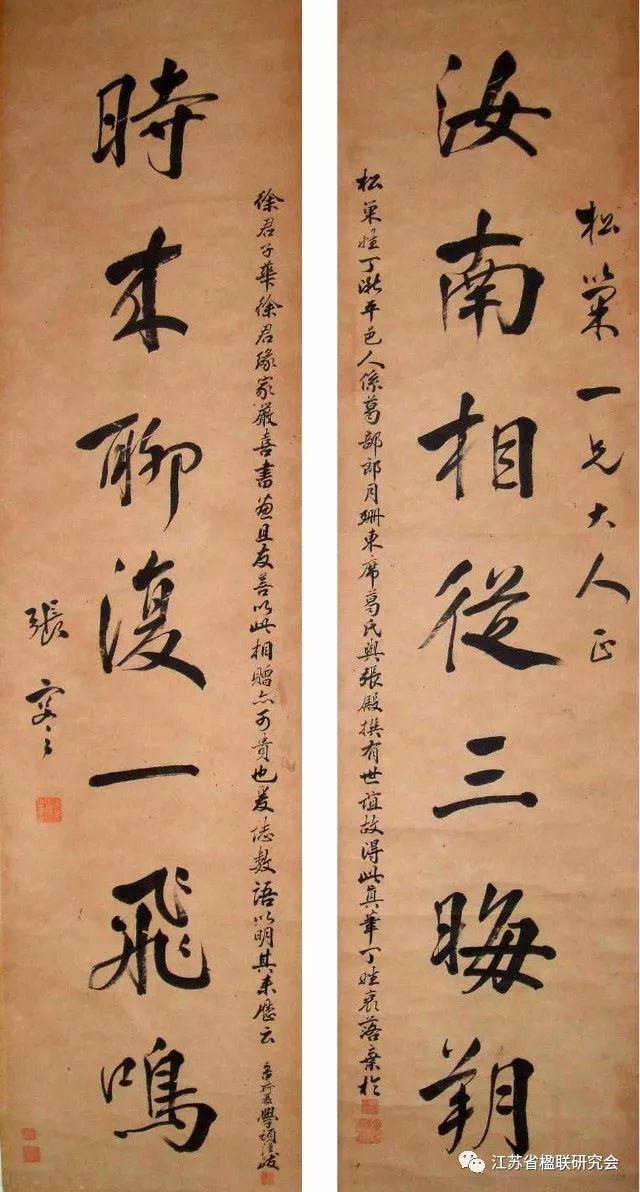 松巢一兄大人正
汝南相從三晦朔
松巢姓丁浙平邑人係葛部郎月珊東席葛氏與張殿撰有世誼故得此真筆丁姓衰落棄於
徐君子華徐君緣家嚴喜書畫且友善以此相贈亦可貴也爰誌數語以明其来歷云
時来聊復一飛鳴
張謇
江苏省楹联研究会